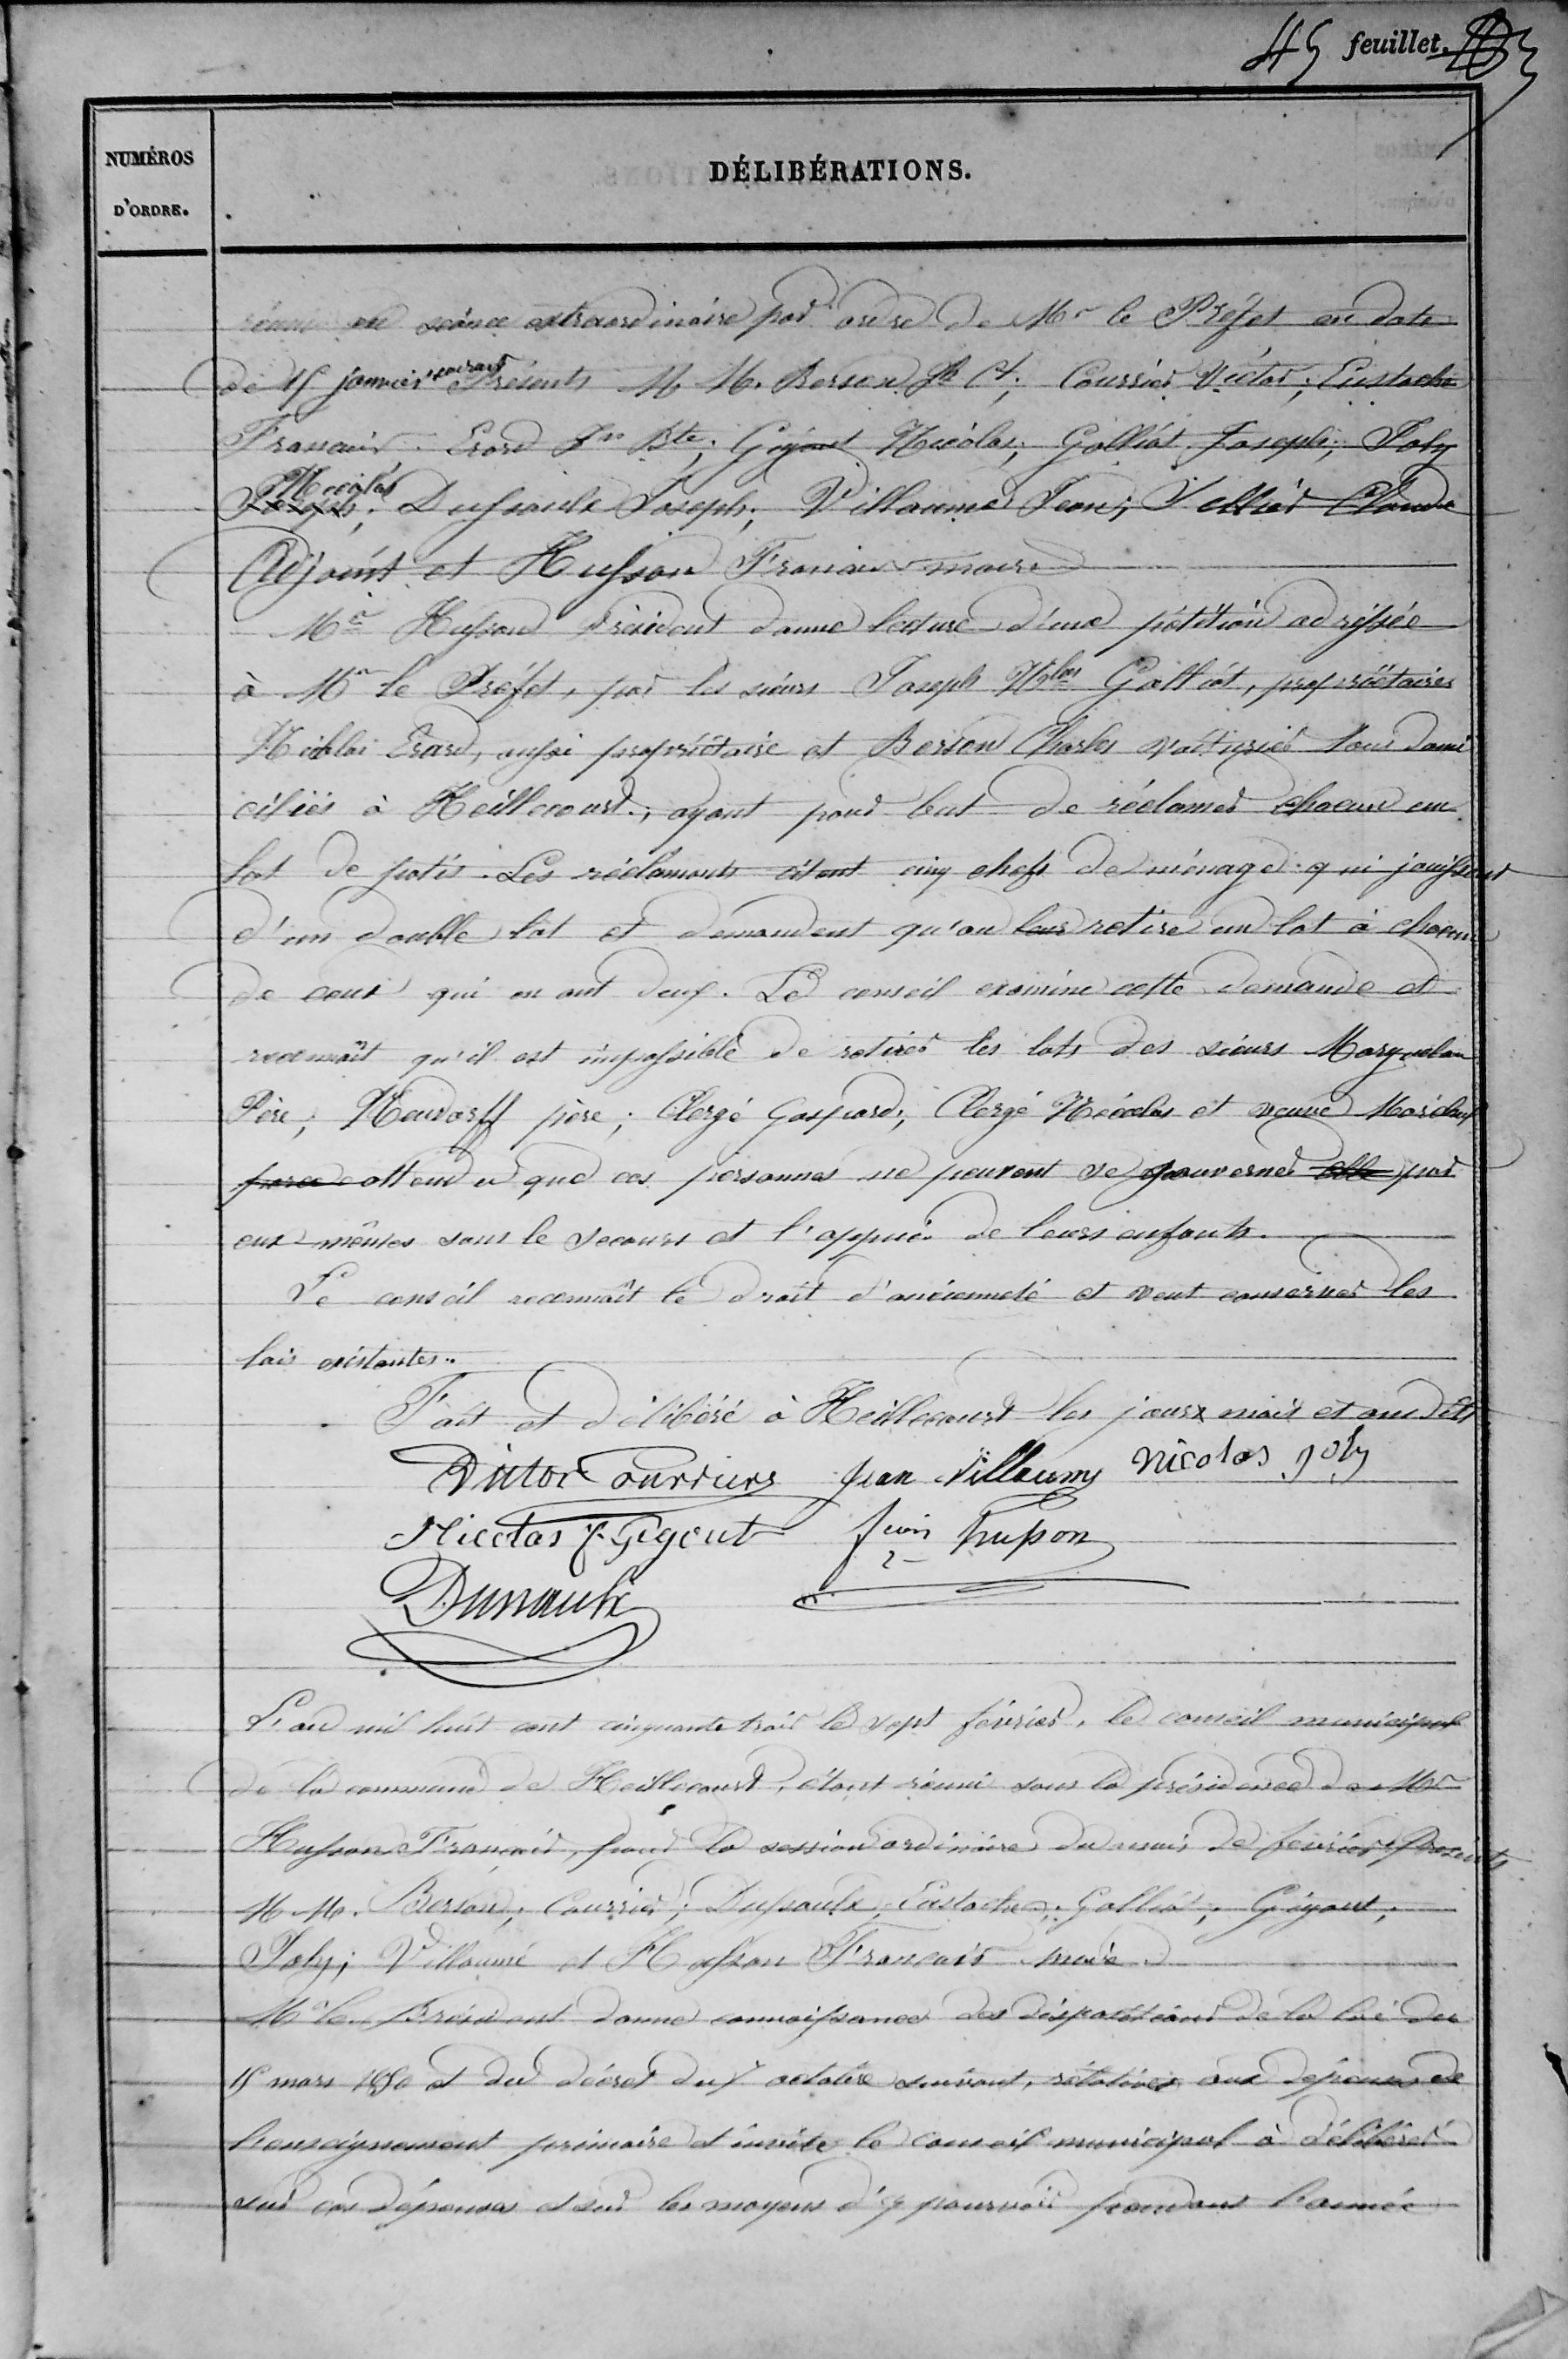 45 feuillet.
NUMÉROS
D'ORDRE.
DÉLIBÉRATIONS.
réuni en séance extraordinaire par ordre de Mr le Préfet en date
de 15 janvier courant Présents M M. Berson Ch; Courrier Victor; Eustache
Francois Erard Jn Bte; Gigout Nicolas; Galliot Joseph; Joly
Nicolas; Dussaulx Joseph; Villaumé Jean; Tellier Claude
Adjoint et Husson Francois maire
Mr Husson Président donne lecture d'une pétition adressée
à Mr le Préfet, par les sieurs Joseph Nlas Galliot, propriétaires
Nicolas Erard, aussi propriétaire et Berson Charles voiturier tous domi
ciliés à Heillecourt, ayant pour but de réclamer chacun un
lot de patis. Les réclamants citent cinq chefs de ménage qui jouissent
d'un double lot et demandent qu'on leur retire un lot à chacun
de ceux qui en ont deux. Le conseil examine cette demande et
reconnaît qu'il est impossible de retirer les lots des sieurs
Père; Neudorff père; Clergé Gaspard; Clergé Nicolas et veuve
parce attendu que ces personnes ne peuvent se gouverner elle par
eux-mêmes sans le secours et l'appui de leurs enfants.
Le conseil reconnaît le droit d'ancienneté et veut conserver les
lois existantes.
Fait et délibéré à Heillecourt les jour mois et an dits
Victor Courrier Jean Villaumé Nicolas Joly
Nicolas F Gigout Husson
Dussaulx
L'an mil huit cent cinquante trois le sept février, le conseil municipal
de la commune de Heillecourt, étant réuni sous la présidence de Mr
Husson François, pour la session ordinaire du mois de février Présents
M M. Berson; Courrier; Dussaulx; Eustache; Galliot; Gigout;
Joly; Villaumé et Husson Francois maire
Mr le Président donne connaissance des dispositions de la loi du
15 mars 1850 et du décret du 7 octobre suivant, relatives aux dépenses de
l'enseignement primaire et invite le Conseil municipal à délibérer
sur ces dépenses et sur les moyens d'y pourvoir pendant l'année